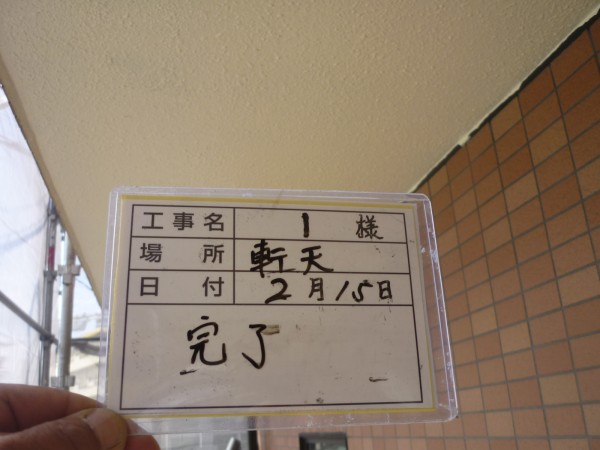 工事名 1 様
場所 軒天
日付 2月15日
完了